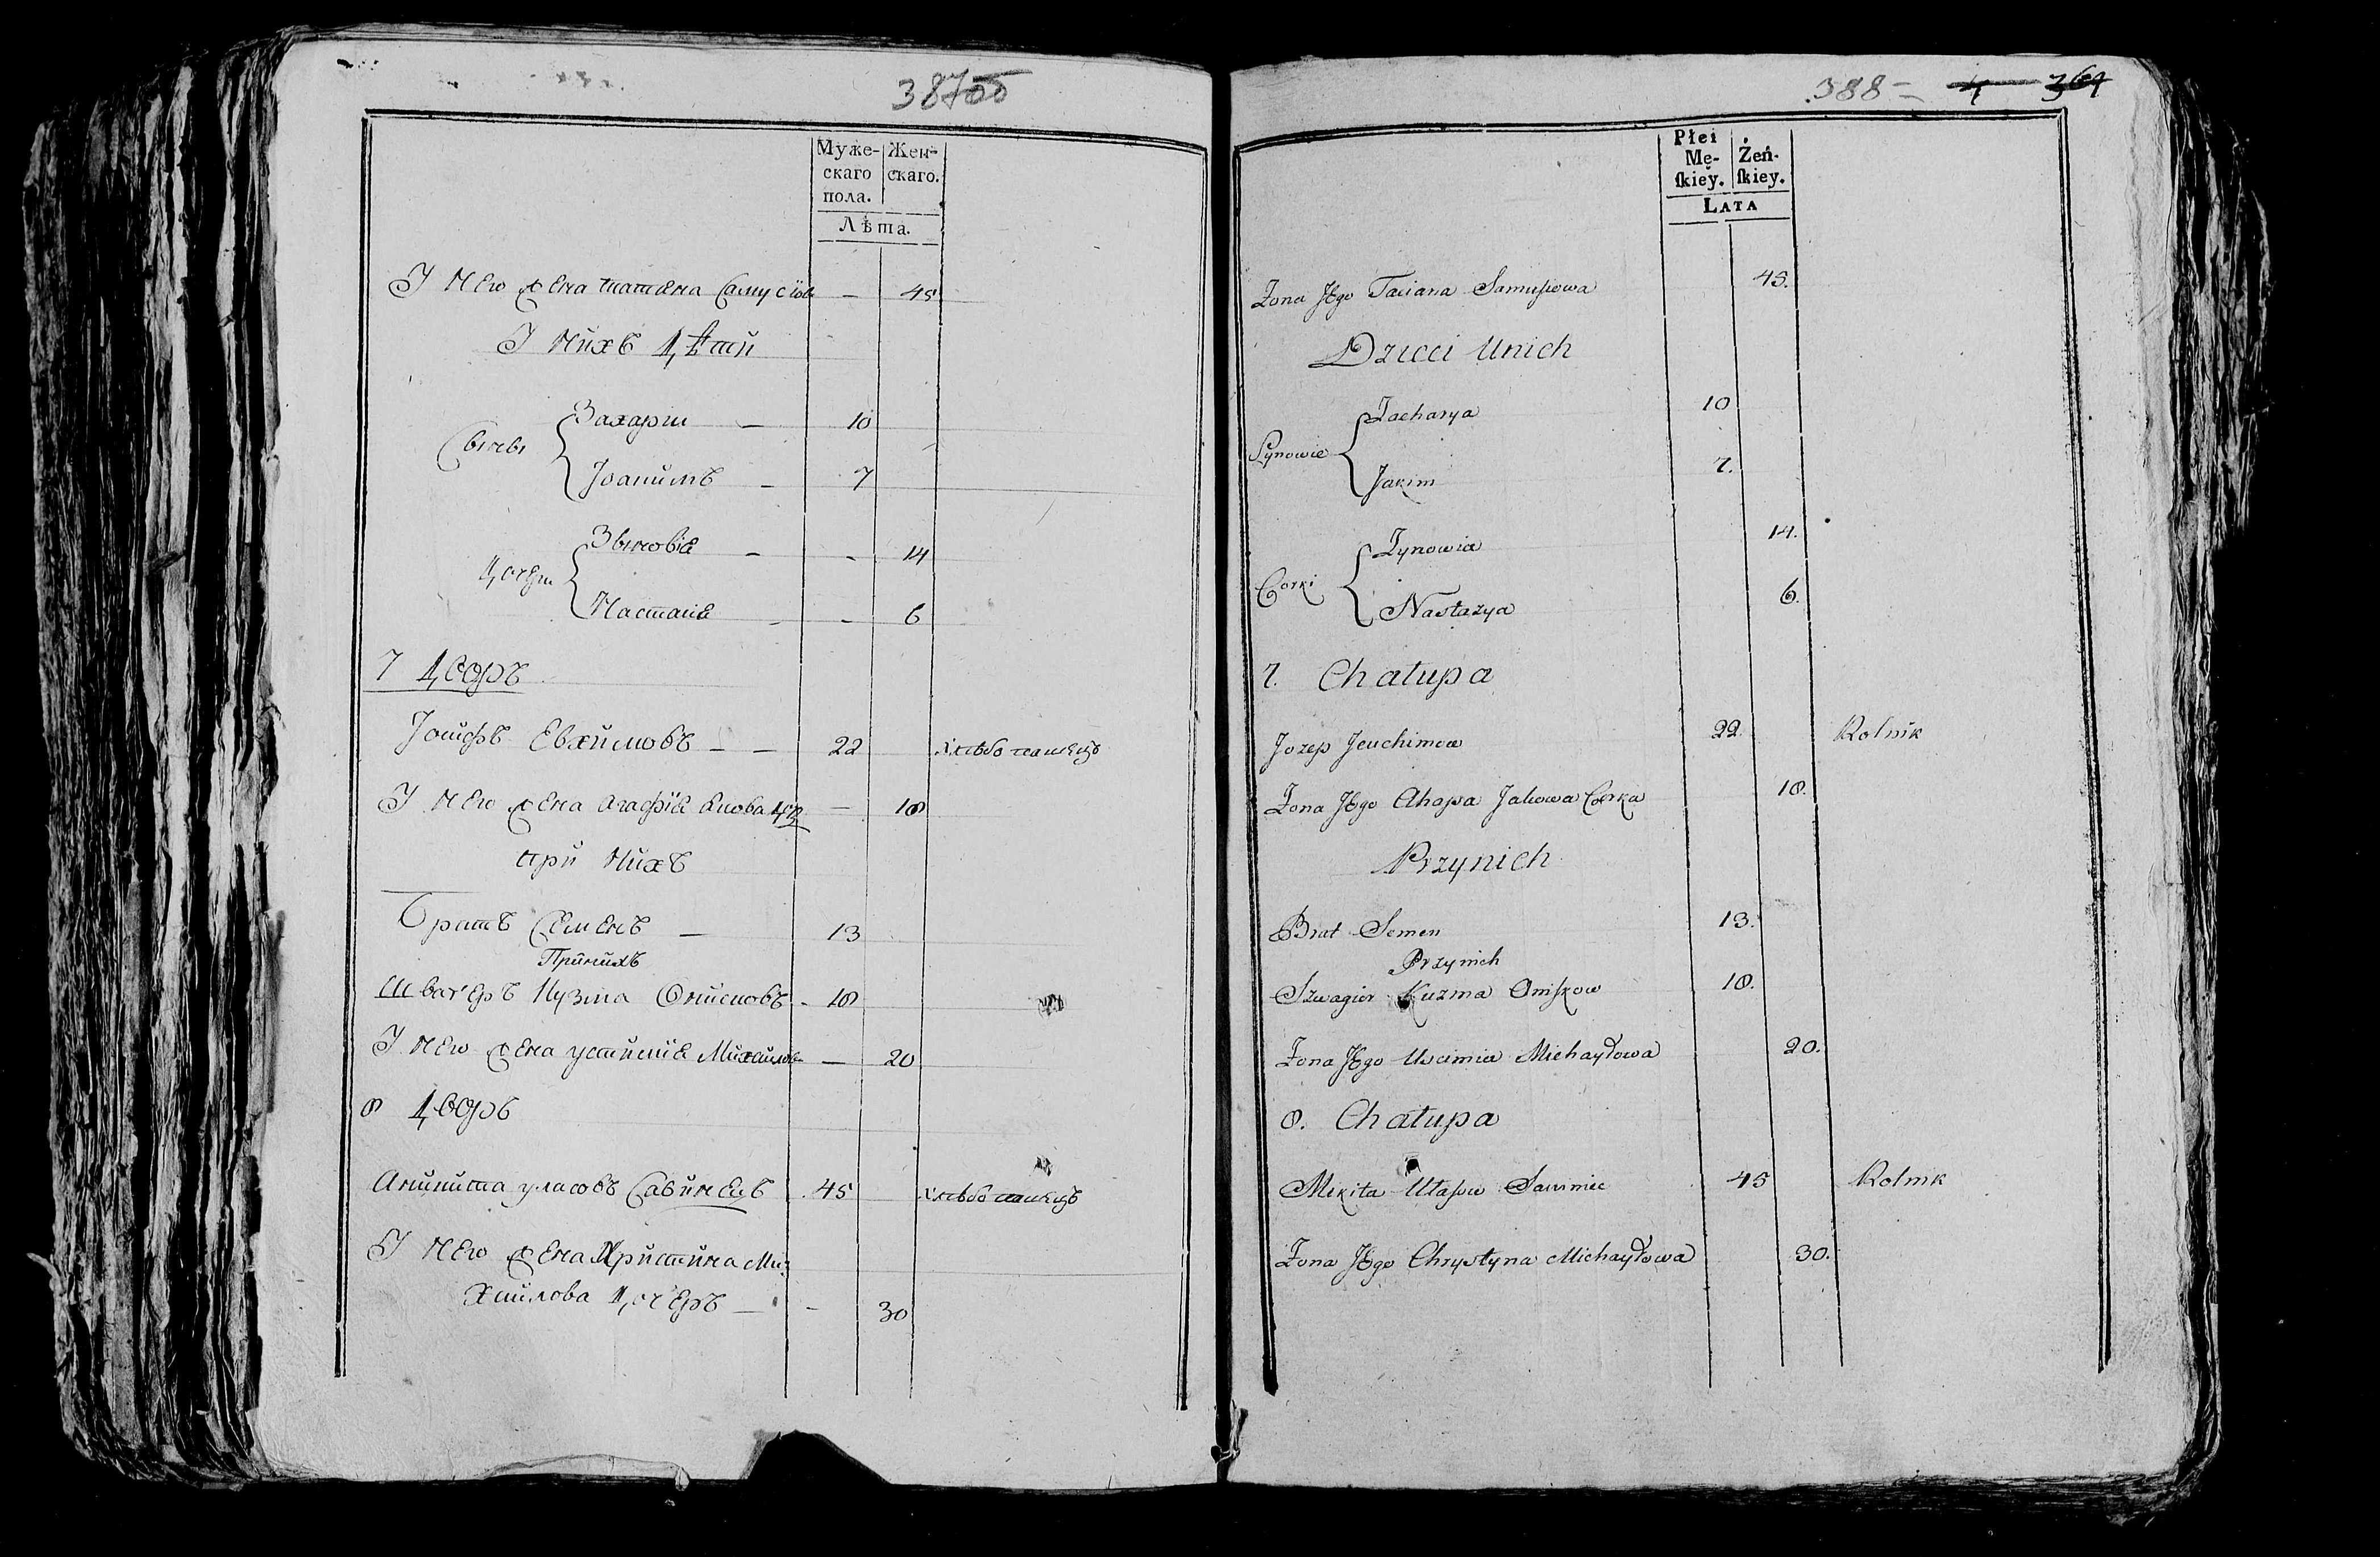 387об
Муже-
скаго
пола.
Жен-
скаго.
Лѣта.
У него жена татяна Самусіов — 45
У нихъ дѣтй
Сыны
Захари — 10
Іоакимъ — 7
дочери
Зыновія — - 14
Настасія — - 6
7 дворъ
Іосифъ Евхимовъ — — 22 Хлѣбопашецъ
У него жена агафія якова доч — 18
при нихъ
Братъ Семенъ — 13
Принихъ
Швагеръ Кузма Онисковъ - 18
У него жена устинія Михайлов — 20
8 дворъ
Аникита уласовъ Савинецъ 45 Хлѣбопашецъ
У него жена Христина Ми-
хайлова дочеръ — - 30
388 4 361
Płei
Mę-
ſkiey.
Żeń-
ſkiey.
LATA
Zona Jego Taciana Samusiowa 45.
Dzieci Unich
Synowie
Zacharya 10
Jakim 7.
Corki
Zynowia 14.
Nastazya 6.
7. Chałupa
Jozep Jeuchimow 22 Rolnik
Zona Jego Ahapa Jakowa Corka 18.
Przynich
Brat Semen 13.
Przynich
Szwagier Kuzma Oniskow 18.
Zona Jego Uscimia Michayłowa 20.
8. Chałupa
Mikita Ułasow Sawiniec 45 Rolnik
Zona Jego Chrystyna Michayłowa 30.